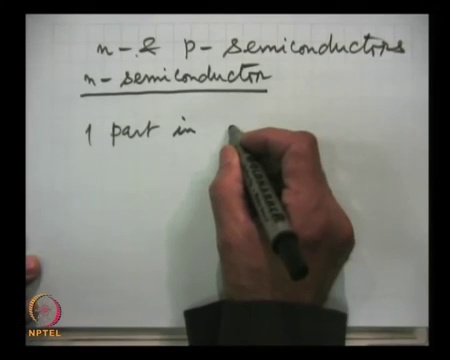 n- & p- semiconductors
n- semiconductor
1 part in
NPTEL